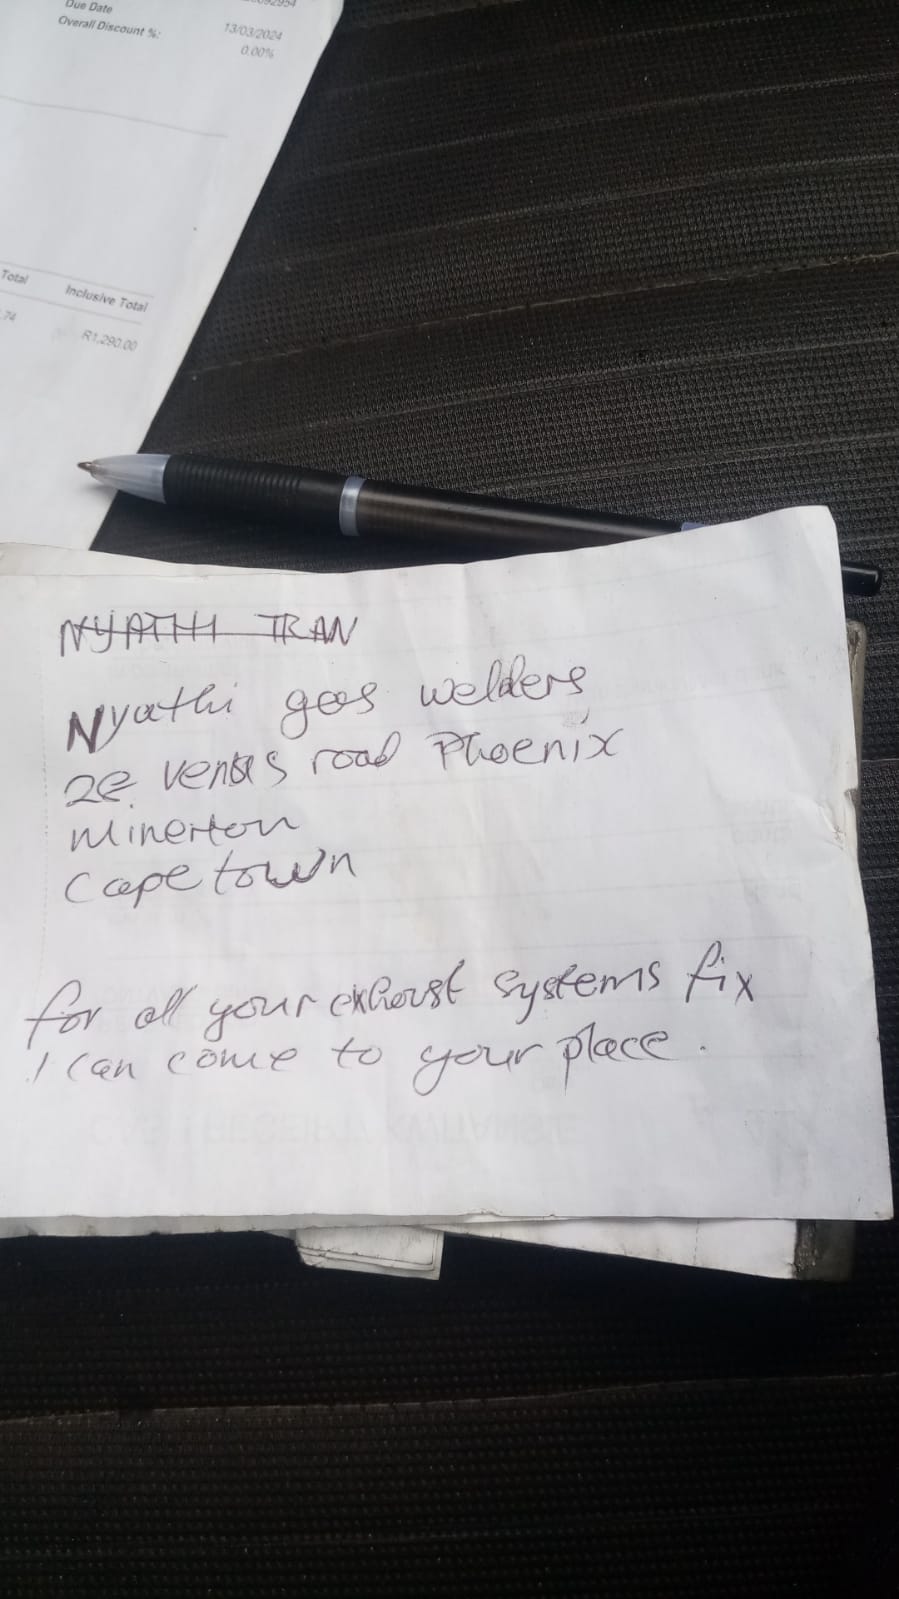 Due Date
Overall Discount %:
13/03/2024
0.00%
Total
Inclusive Total
.74
R1,290.00
NYATHI TRAN
Nyathi gas welders
2e venus road Phoenix
Minerton
Cape town
for all your exhaust systems fix
I can come to your place.